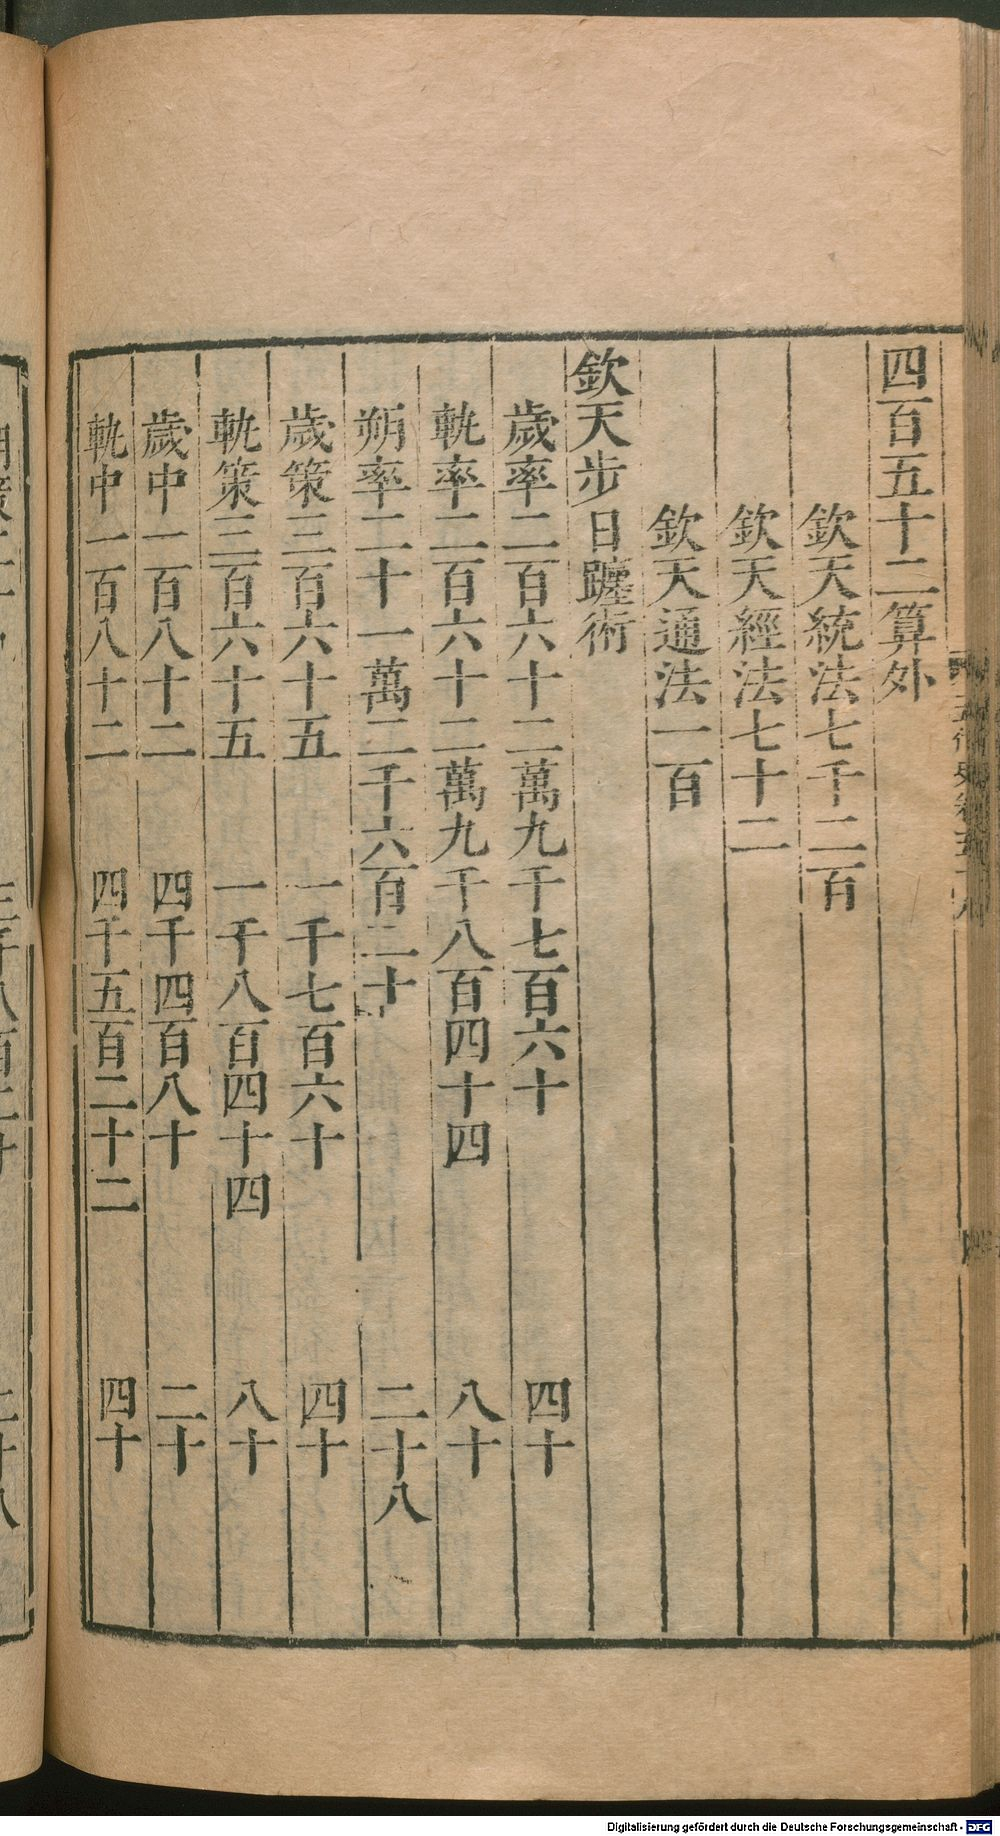 四百五十二算外
欽天統法七千二百
欽天經法七十二
欽天通法一百
欽天步日躔術
歲率二百六十二萬九千七百六十　四十
軌率二百六十二萬九千八百四十四　八十
朔率二十一萬二千六百二十　二十八
歲策三百六十五　一千七百六十　四十
軌策三百六十五　一千八百四十四　八十
歲中一百八十二　四千四百八十　二十
軌中一百八十二　四千五百二十二　四十
Digitalisierung gefördert durch die Deutsche Forschungsgemeinschaft - DFG